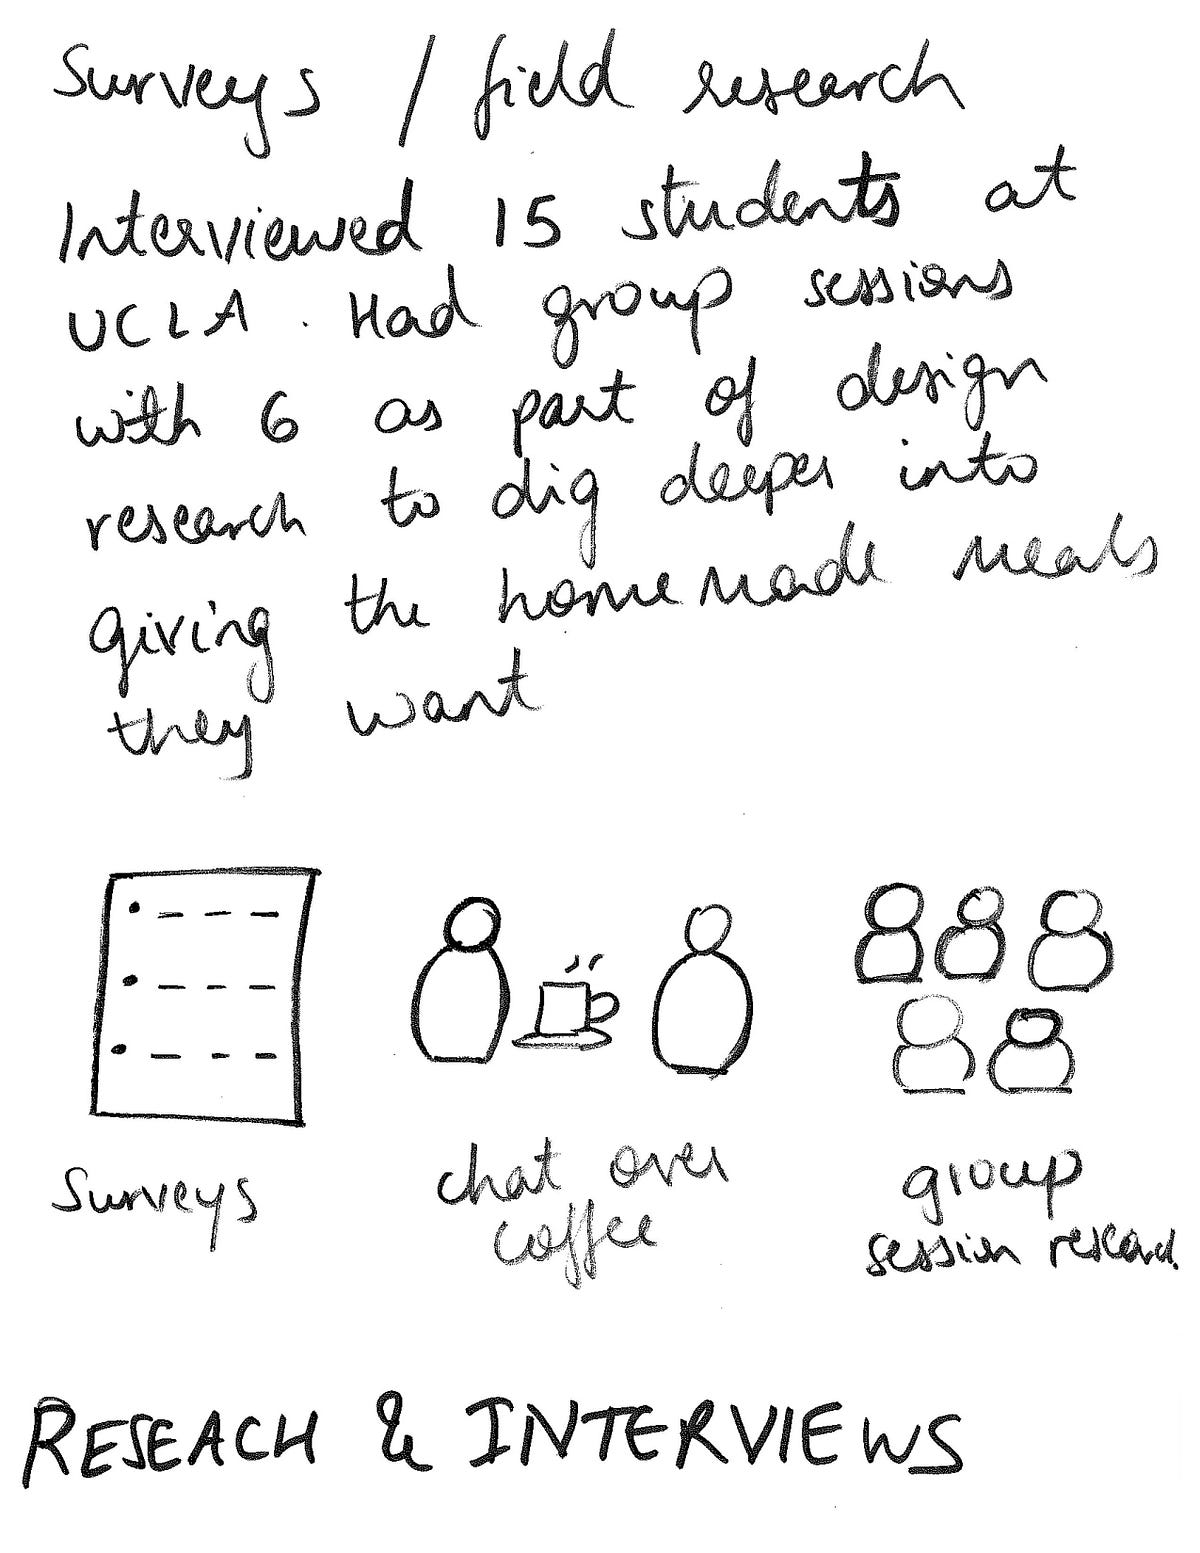 Surveys / field research
Interviewed 15 students at
UCLA. Had group sessions
with 6 as part of design
research to dig deeper into
giving the homemade meals
they want
Surveys
chat over
coffee
group
session research
RESEACH & INTERVIEWS